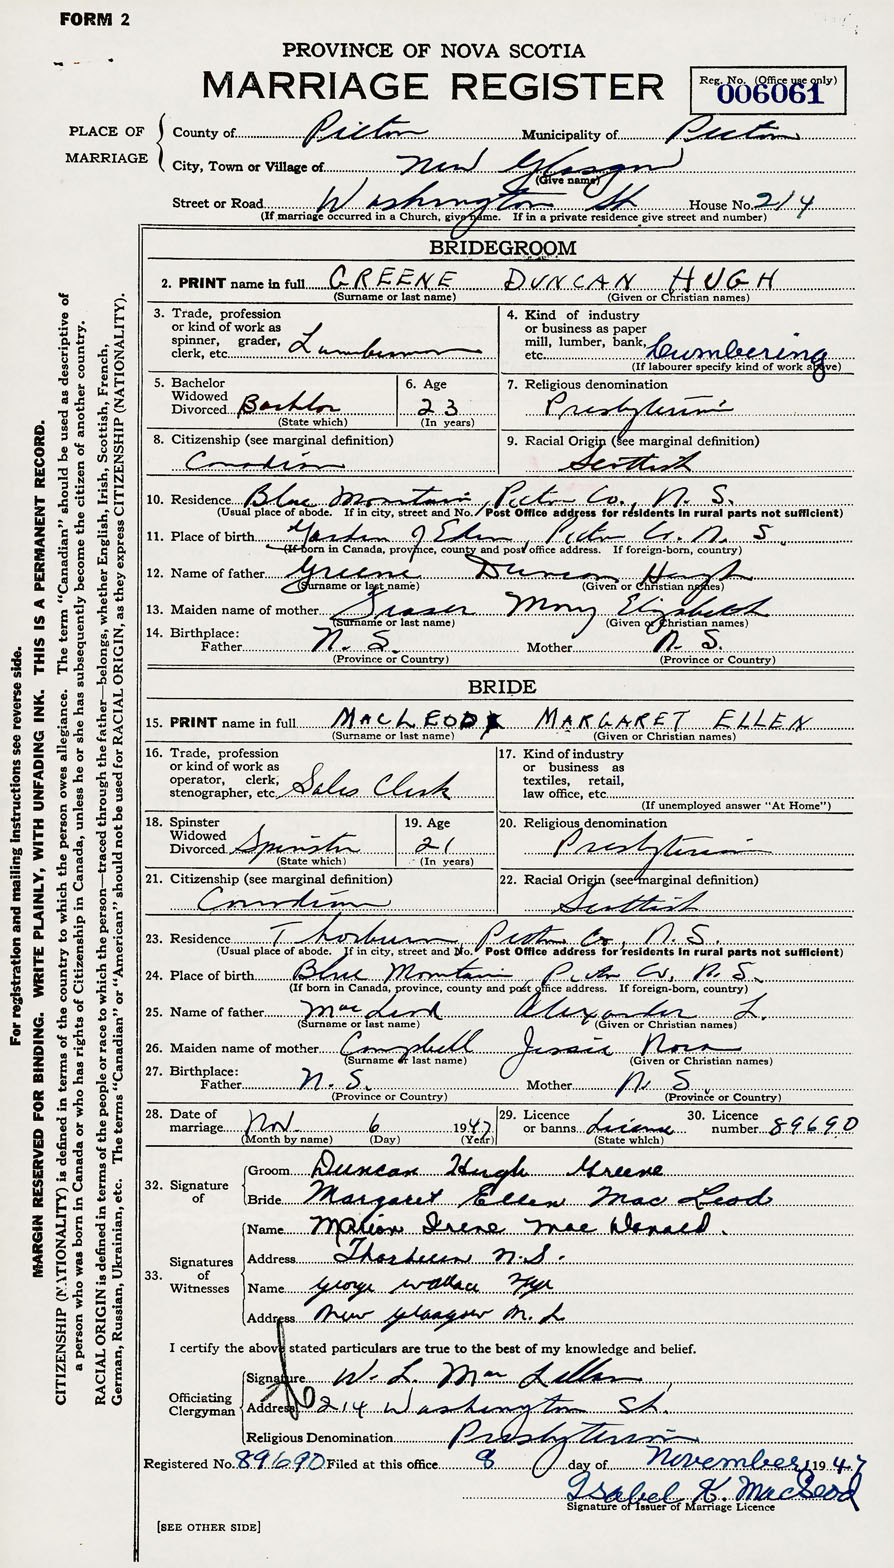 FORM 2
PROVINCE OF NOVA SCOTIA
MARRIAGE REGISTER
Reg. No. (Office use only)
006061
PLACE OF MARRIAGE
County of Pictou Municipality of Pictou
City, Town or Village of New Glasgow
(Give name)
Street or Road Washington St. House No. 214
(If marriage occurred in a Church, give name. If in a private residence give street and number)
BRIDEGROOM
2. PRINT name in full GREENE DUNCAN HUGH
(Surname or last name) (Given or Christian names)
3. Trade, profession
or kind of work as
spinner, grader,
clerk, etc. Lumberman
4. Kind of industry
or business as paper
mill, lumber, bank,
etc. Lumbering
(If labourer specify kind of work above)
5. Bachelor
Widowed
Divorced Bachlor
(State which)
6. Age
23
(In years)
7. Religious denomination
Presbyterian
8. Citizenship (see marginal definition)
Canadian
9. Racial Origin (see marginal definition)
Scottish
10. Residence Blue Mountain, Pictou Co., N. S.
(Usual place of abode. If in city, street and No. Post Office address for residents in rural parts not sufficient)
11. Place of birth Garden of Eden, Pictou Co. N. S.
(If born in Canada, province, county and post office address. If foreign-born, country)
12. Name of father Greene Duncan Hugh
(Surname or last name) (Given or Christian names)
13. Maiden name of mother Fraser Mary Elizabeth
(Surname or last name) (Given or Christian names)
14. Birthplace:
Father N. S. Mother N. S.
(Province or Country) (Province or Country)
BRIDE
15. PRINT name in full MACLEOD MARGARET ELLEN
(Surname or last name) (Given or Christian names)
16. Trade, profession
or kind of work as
operator, clerk,
stenographer, etc. Sales Clerk
17. Kind of industry
or business as
textiles, retail,
law office, etc.
(If unemployed answer "At Home")
18. Spinster
Widowed
Divorced Spinster
(State which)
19. Age
21
(In years)
20. Religious denomination
Presbyterian
21. Citizenship (see marginal definition)
Canadian
22. Racial Origin (see marginal definition)
Scottish
23. Residence Thorburn, Pictou Co., N. S.
(Usual place of abode. If in city, street and No. Post Office address for residents in rural parts not sufficient)
24. Place of birth Blue Mountain, Pictou Co, N. S.
(If born in Canada, province, county and post office address. If foreign-born, country)
25. Name of father MacLeod Alexander L.
(Surname or last name) (Given or Christian names)
26. Maiden name of mother Campbell Jessie Nora
(Surname or last name) (Given or Christian names)
27. Birthplace:
Father N. S. Mother N. S.
(Province or Country) (Province or Country)
28. Date of
marriage Nov. 6 1947
(Month by name) (Day) (Year)
29. Licence
or banns License
(State which)
30. Licence
number 89690
32. Signature of
Groom Duncan Hugh Greene
Bride Margaret Ellen Mac Leod
33. Signatures of Witnesses
Name Marion Irene Mac Donald.
Address Thorburn N. S.
Name George Wallace
Address New Glasgow N. S
I certify the above stated particulars are true to the best of my knowledge and belief.
Officiating Clergyman
Signature W. L. Mac Lellan
Address 214 Washington St.
Religious Denomination Presbyterian
Registered No. 89690 Filed at this office 8 day of November 1947
Isabel K. MacLeod
Signature of Issuer of Marriage Licence
[SEE OTHER SIDE]
For registration and mailing instructions see reverse side.
MARGIN RESERVED FOR BINDING. WRITE PLAINLY, WITH UNFADING INK. THIS IS A PERMANENT RECORD.
CITIZENSHIP (NATIONALITY) is defined in terms of the country to which the person owes allegiance. The term "Canadian" should be used as descriptive of
a person who was born in Canada or who has rights of Citizenship in Canada, unless he or she has subsequently become the citizen of another country.
RACIAL ORIGIN is defined in terms of the people or race to which the person—traced through the father—belongs, whether English, Irish, Scottish, French,
German, Russian, Ukrainian, etc. The terms "Canadian" or "American" should not be used for RACIAL ORIGIN, as they express CITIZENSHIP (NATIONALITY).